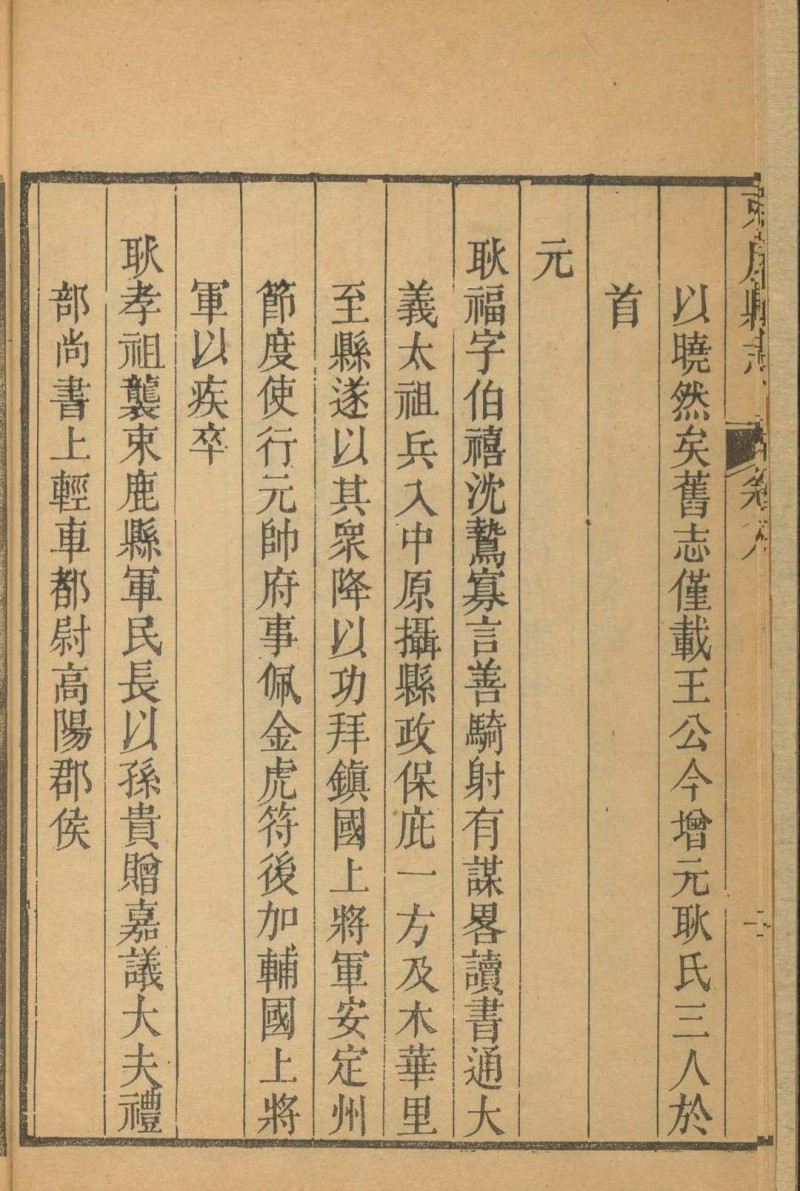 以曉然矣舊志僅載王公今增元耿氏三人於
首
元
耿福字伯禧沈鷙寡言善騎射有謀畧讀書通大
義太祖兵入中原攝縣政保庇一方及木華里
至縣遂以其衆降以功拜鎮國上將軍安定州
節度使行元帥府事佩金虎符後加輔國上將
軍以疾卒
耿孝祖襲束鹿縣軍民長以孫貴贈嘉議大夫禮
部尚書上輕車都尉高陽郡侯